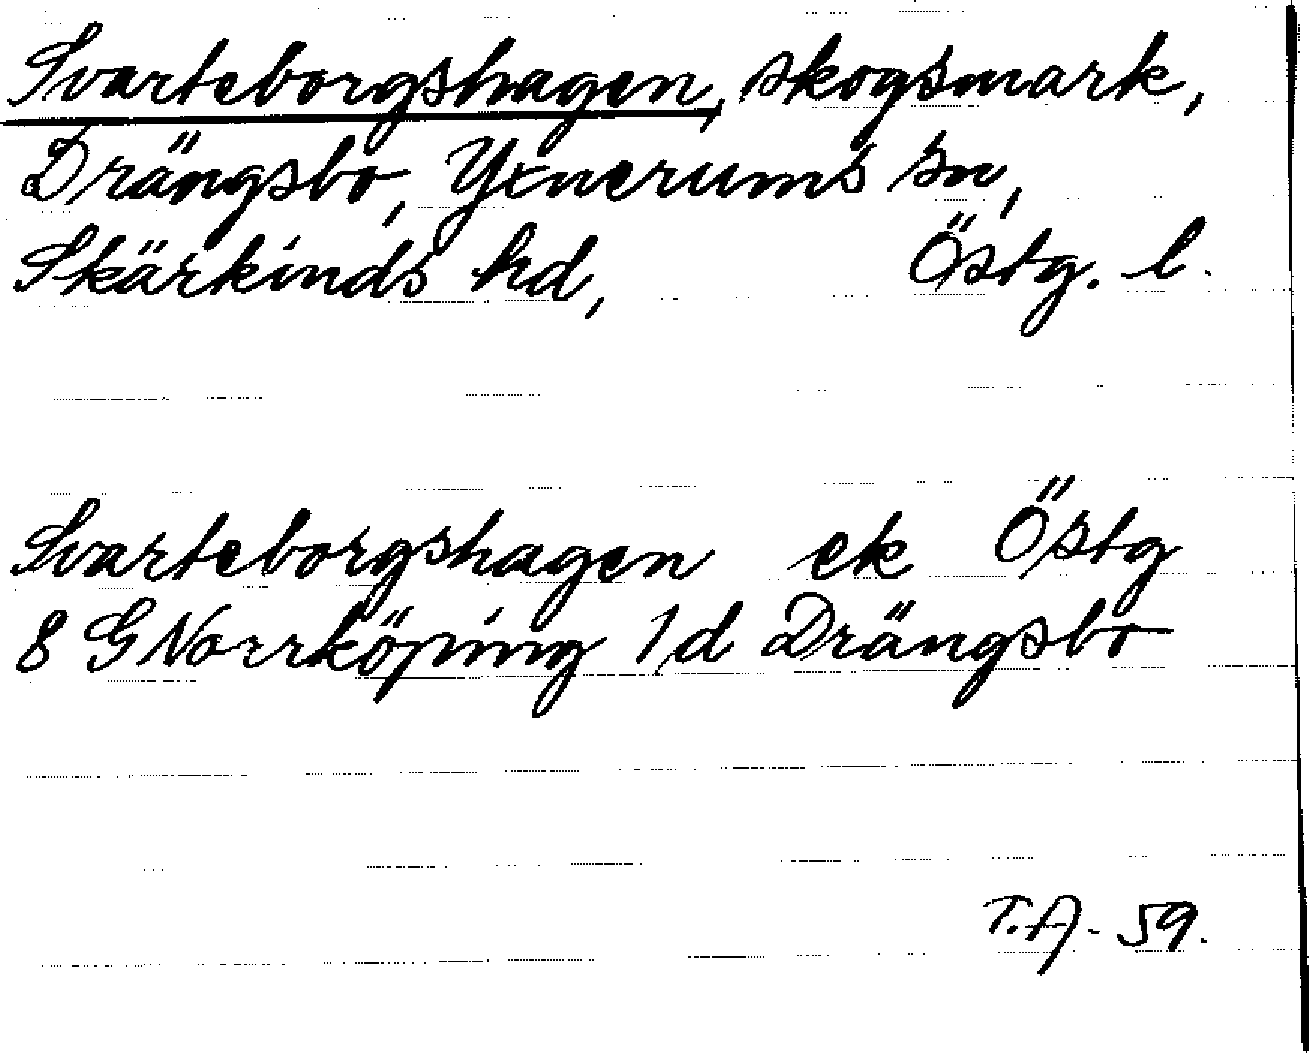 Svarteborgshagen, skogsmark,
Drängsbo, Yxnerums sn,
Skärkinds hd, Östg. l.
Svarteborgshagen ek Östg
8 G Norrköping 1d Drängsbo
T.A. 59.